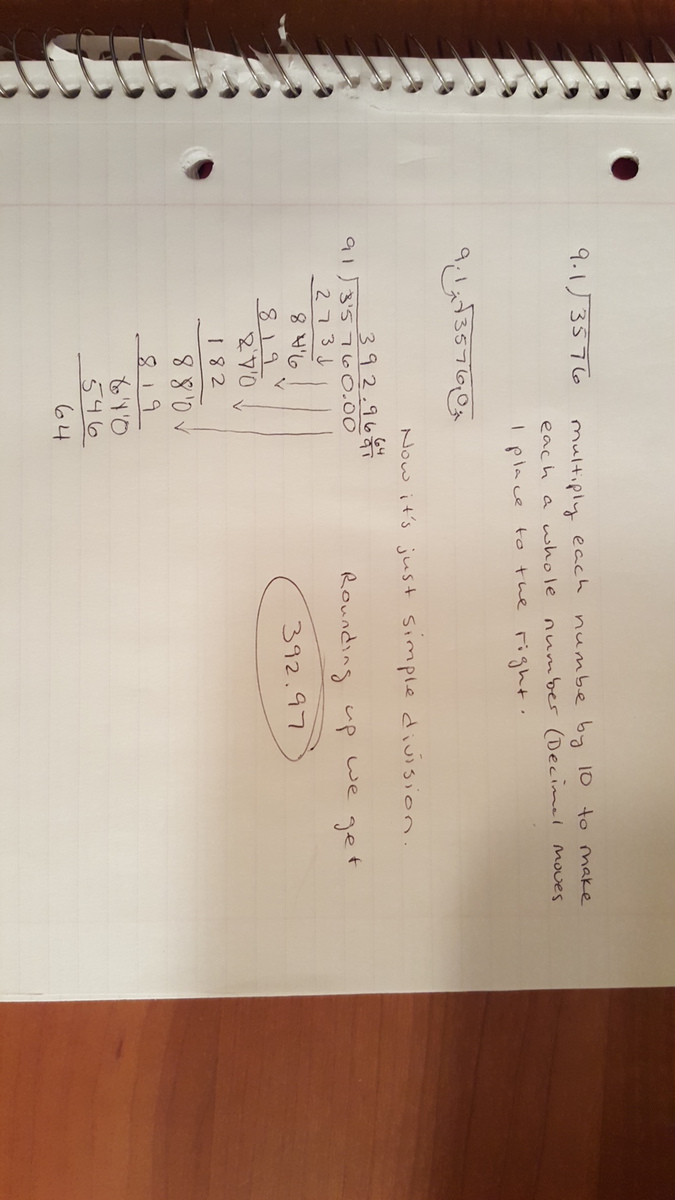 9.1 ⟌ 3576 multiply each numbe by 10 to make
each a whole number (Decimal moves
1 place to the right.
9.1. ⟌ 3576.0.
Now it's just simple division.
392.96 64/91
91 ⟌ 35760.00
273
846
819
Rounding up we get
392.97
270
182
880
819
610
546
64